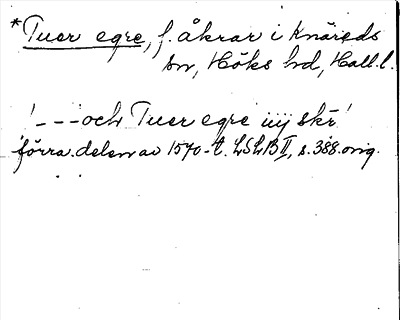 *Tuer egre, f. åkrar i Knäreds
sn, Höks hd, Hall. l.
'- - - och Tuer egre iiij skr'
förra delen av 1570-t. LSLB II, s. 388. orig.